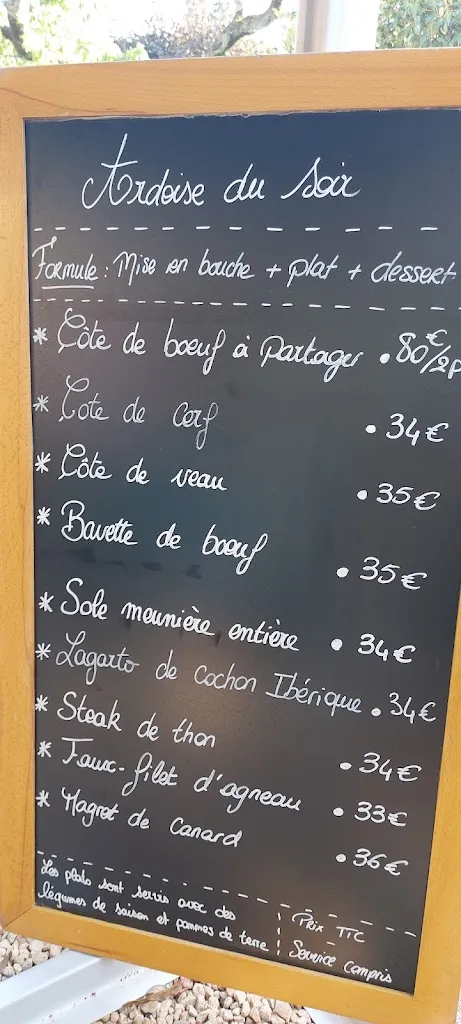 Ardoise du Soir
Formule : Mise en bouche + plat + dessert
* Côte de boeuf à partager • 80€/2p
* Cote de cerf • 34€
* Côte de veau • 35€
* Bavette de boeuf • 35€
* Sole meunière entière • 34€
* Lagarto de cochon Ibérique • 34€
* Steak de thon • 34€
* Faux-filet d'agneau • 33€
* Magret de canard • 36€
Les plats sont servis avec des
légumes de saison et pommes de terre
Prix TTC
Service compris